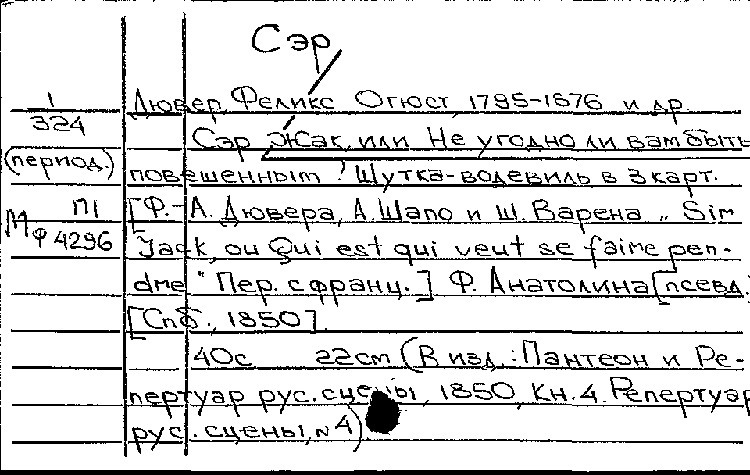 Сэр
1
324
(период.)
П1
М Ф 4296
Дювер, Феликс Огюст, 1795-1876 и др.
Сэр Жак, или Не угодно ли вам быть
повешенным? Шутка-водевиль в 3 карт.
[Ф.-А. Дювера, А. Шапо и Ш. Варена „Sir
Jack, ou Qui est qui veut se faire pen-
dre“ Пер. с франц.] Ф. Анатолина [псевд.]
[Спб., 1850].
40с 22cm (В изд.: Пантеон и Ре-
пертуар рус. сцены, 1850, Кн. 4. Репертуар
рус. сцены, №4)